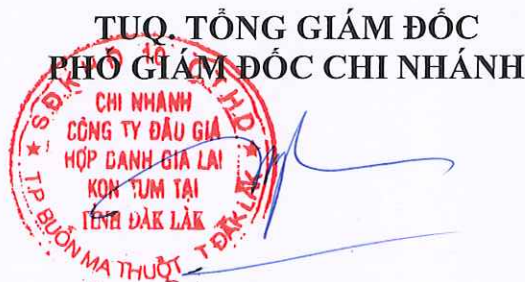 TUQ. TỔNG GIÁM ĐỐC
PHÓ GIÁM ĐỐC CHI NHÁNH
CHI NHÁNH
CÔNG TY ĐẤU GIÁ
HỢP DANH GIA LAI
KON TUM TẠI
TỈNH ĐẮK LẮK
T.P BUÔN MA THUỘT T ĐẮK LẮK